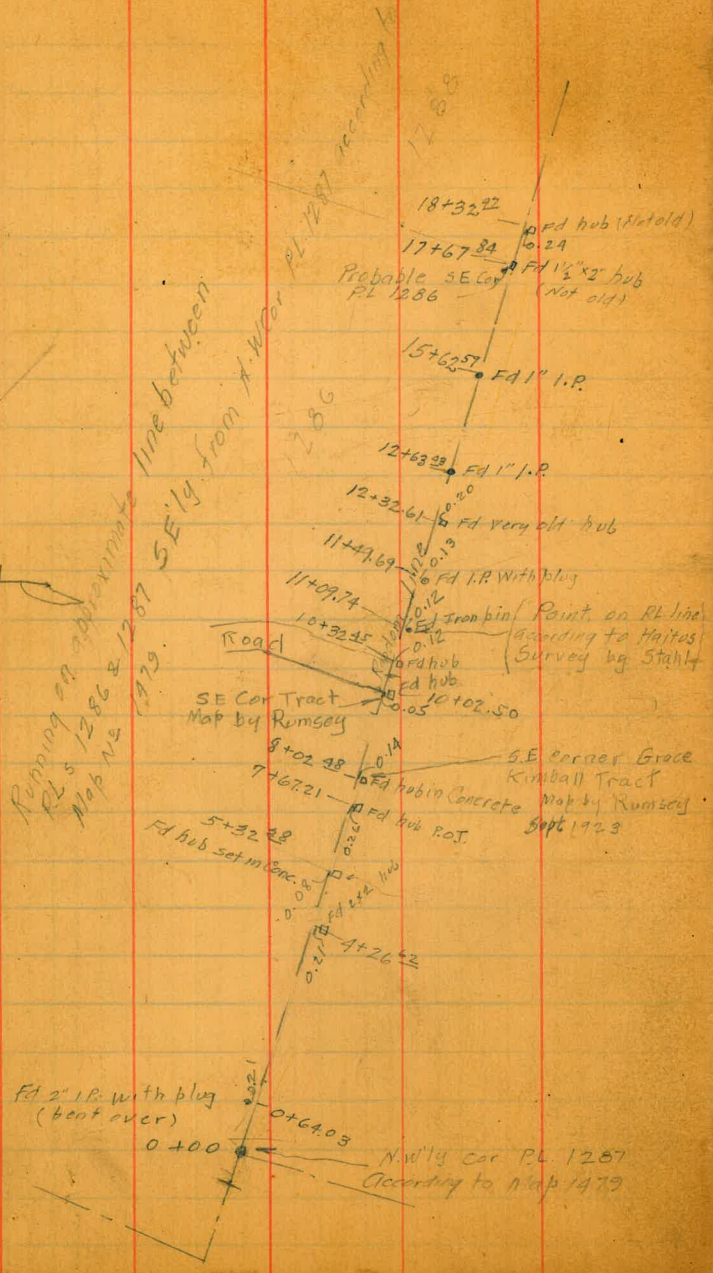 Running on approximate line between
P.L.s 1286 & 1287 S.E'ly from N.W Cor P.L. 1287 according to
Map No 1979
1288
1286
18+32.92
Fd hub (Not old)
0.24
17+67.84
Fd 1½"x2" hub
(Not old)
Probable S.E Cor
P.L 1286
15+62.59
Fd 1" I.P.
12+63.93
Fd 1" I.P.
12+32.61
0.20
Fd very old hub
11+49.69
0.13
Fd I.P. With plug
11+09.74
0.12
Fd Iron pin
Point on P.L. line
according to
Survey by Stahl
Random Line
10+32.45
0.12
Fd hub
Road
Fd hub
10+02.50
0.05
S.E Cor Tract
Map by Rumsey
8+02.48
0.14
Fd hub in Concrete
S.E corner Grace
Kimball Tract
Map by Rumsey
Sept 1923
7+67.21
Fd hub P.O.T.
0.26
5+32.28
Fd hub set in Conc.
0.08
Fd 2x2 hub
4+26.62
0.21
0.21
Fd 2" I.P. with plug
(bent over)
0+64.03
0+00
N.W'ly cor P.L. 1287
According to Map 1979